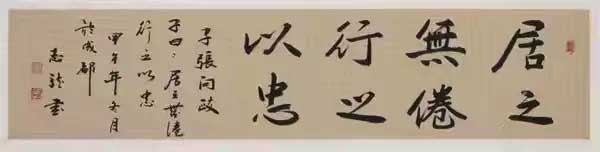 居之
無倦
行之
以忠
子張問政
子曰：居之無倦
行之以忠
甲午年冬月
於成都
志
書